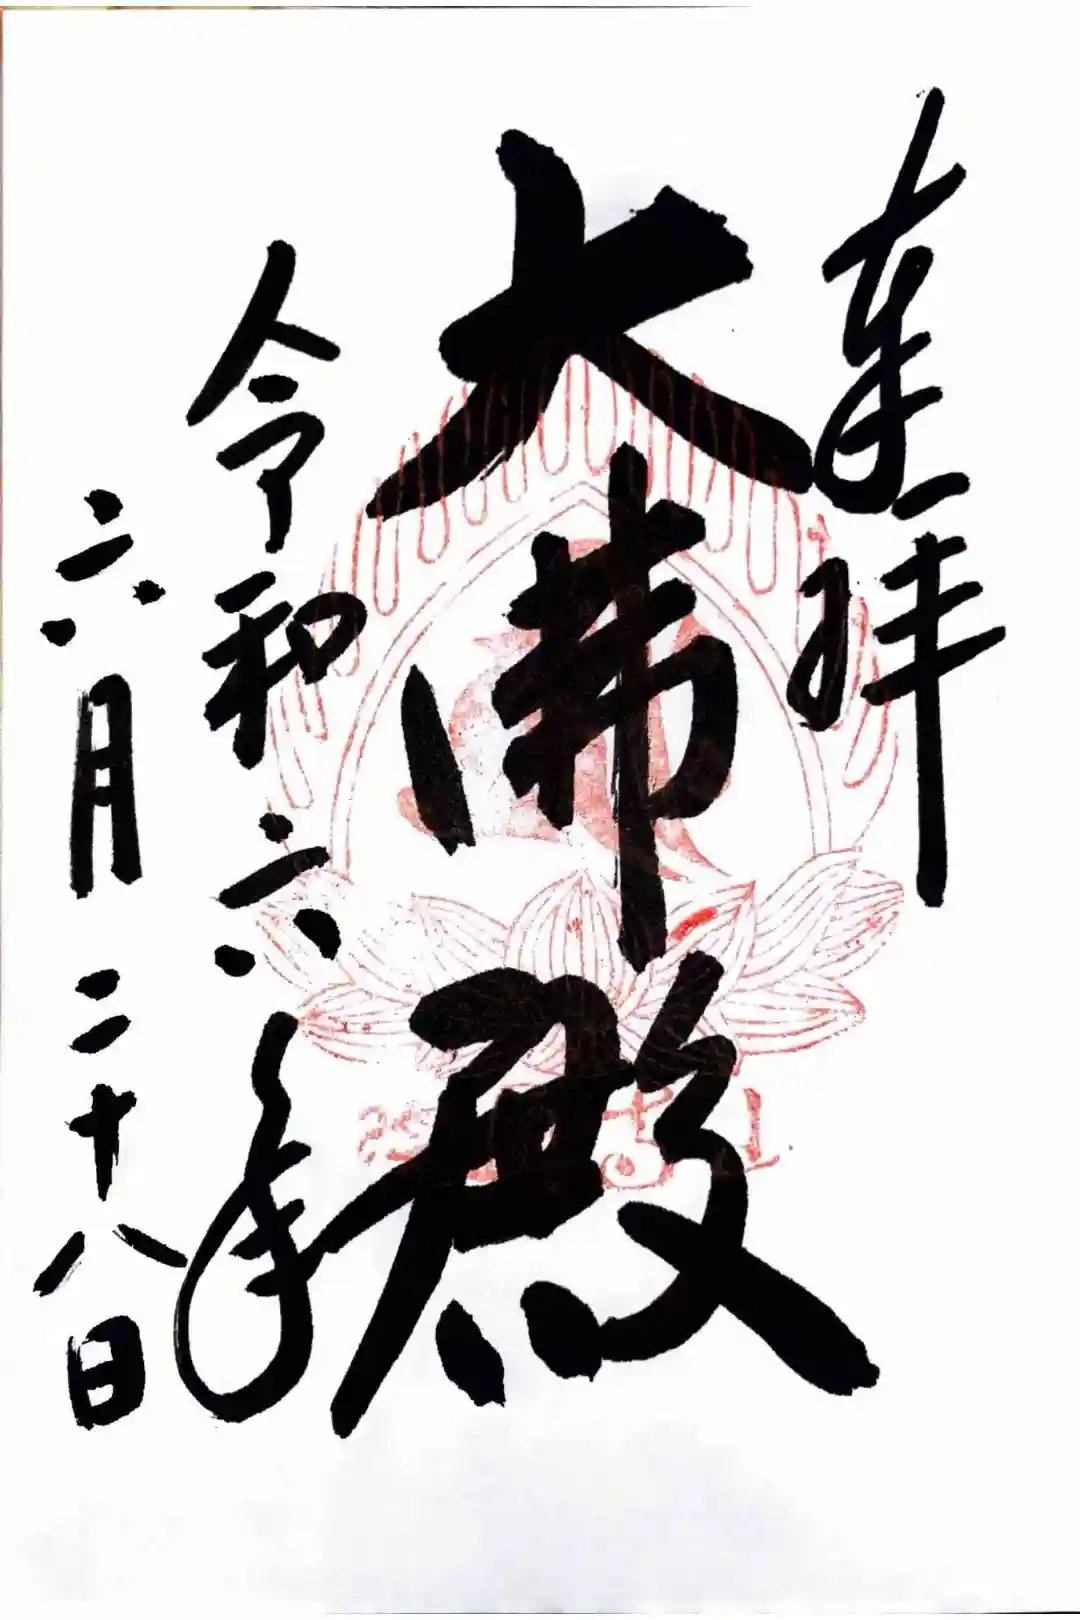 奉拝
大佛殿
令和六年
六月二十八日